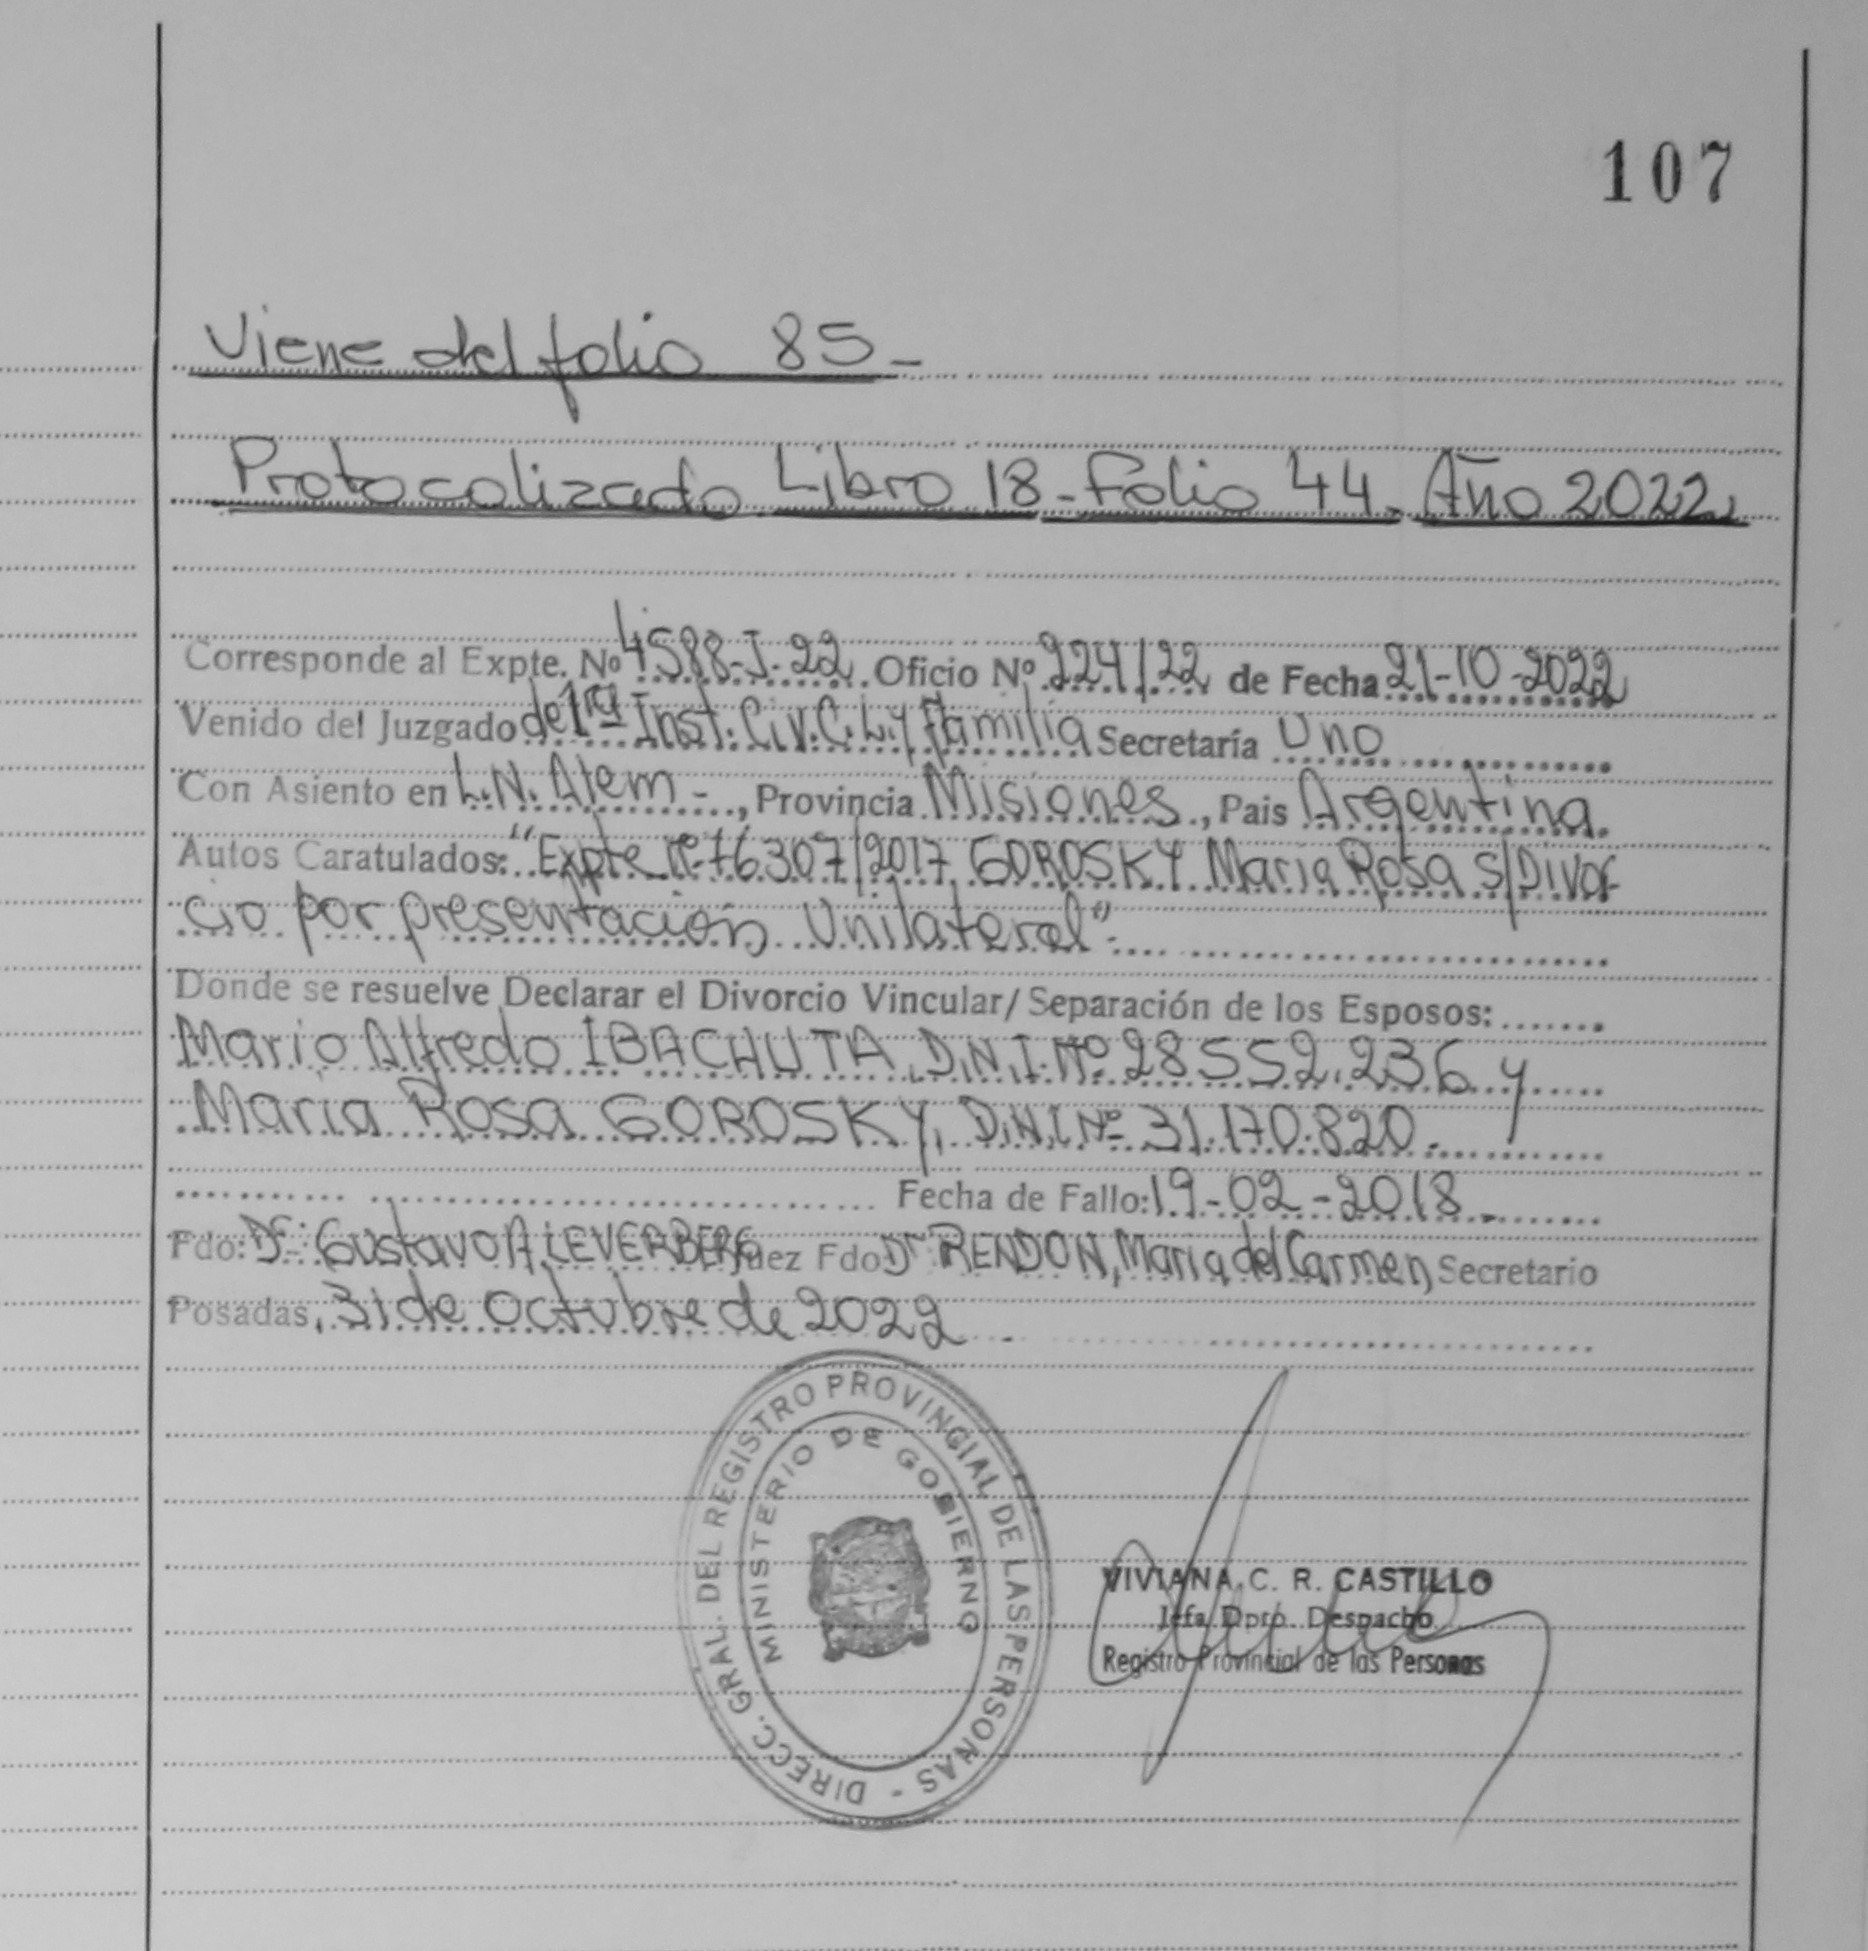 107
Viene del folio 85-
Protocolizado Libro 18-Folio 44. Año 2022
Corresponde al Expte. Nº 4588-I-22 Oficio Nº 224/22 de Fecha 21-10-2022
Venido del Juzgado de 1ra Inst. Civ. C. L. y Familia Secretaría Uno
Con Asiento en L.N. Alem-, Provincia Misiones, Pais Argentina
Autos Caratulados: "Expte nº 76307/2017 GOROSKY Maria Rosa S/Divor-
cio por presentación Unilateral".
Donde se resuelve Declarar el Divorcio Vincular/Separación de los Esposos:
Mario Alfredo IBACHUTA, D.N.I. Nº 28.552.236 y
María Rosa GOROSKY, D.N.I Nº 31.170.820.
Fecha de Fallo: 19-02-2018
Fdo: Dr. Gustavo A. LEVERBERG Juez Fdo Dr RENDON, Maria del Carmen Secretario
Posadas, 31 de Octubre de 2022
DIRECC. GRAL. DEL REGISTRO PROVINCIAL DE LAS PERSONAS -
MINISTERIO DE GOBIERNO
VIVIANA C. R. CASTILLO
Jefa Dpto. Despacho
Registro Provincial de las Personas